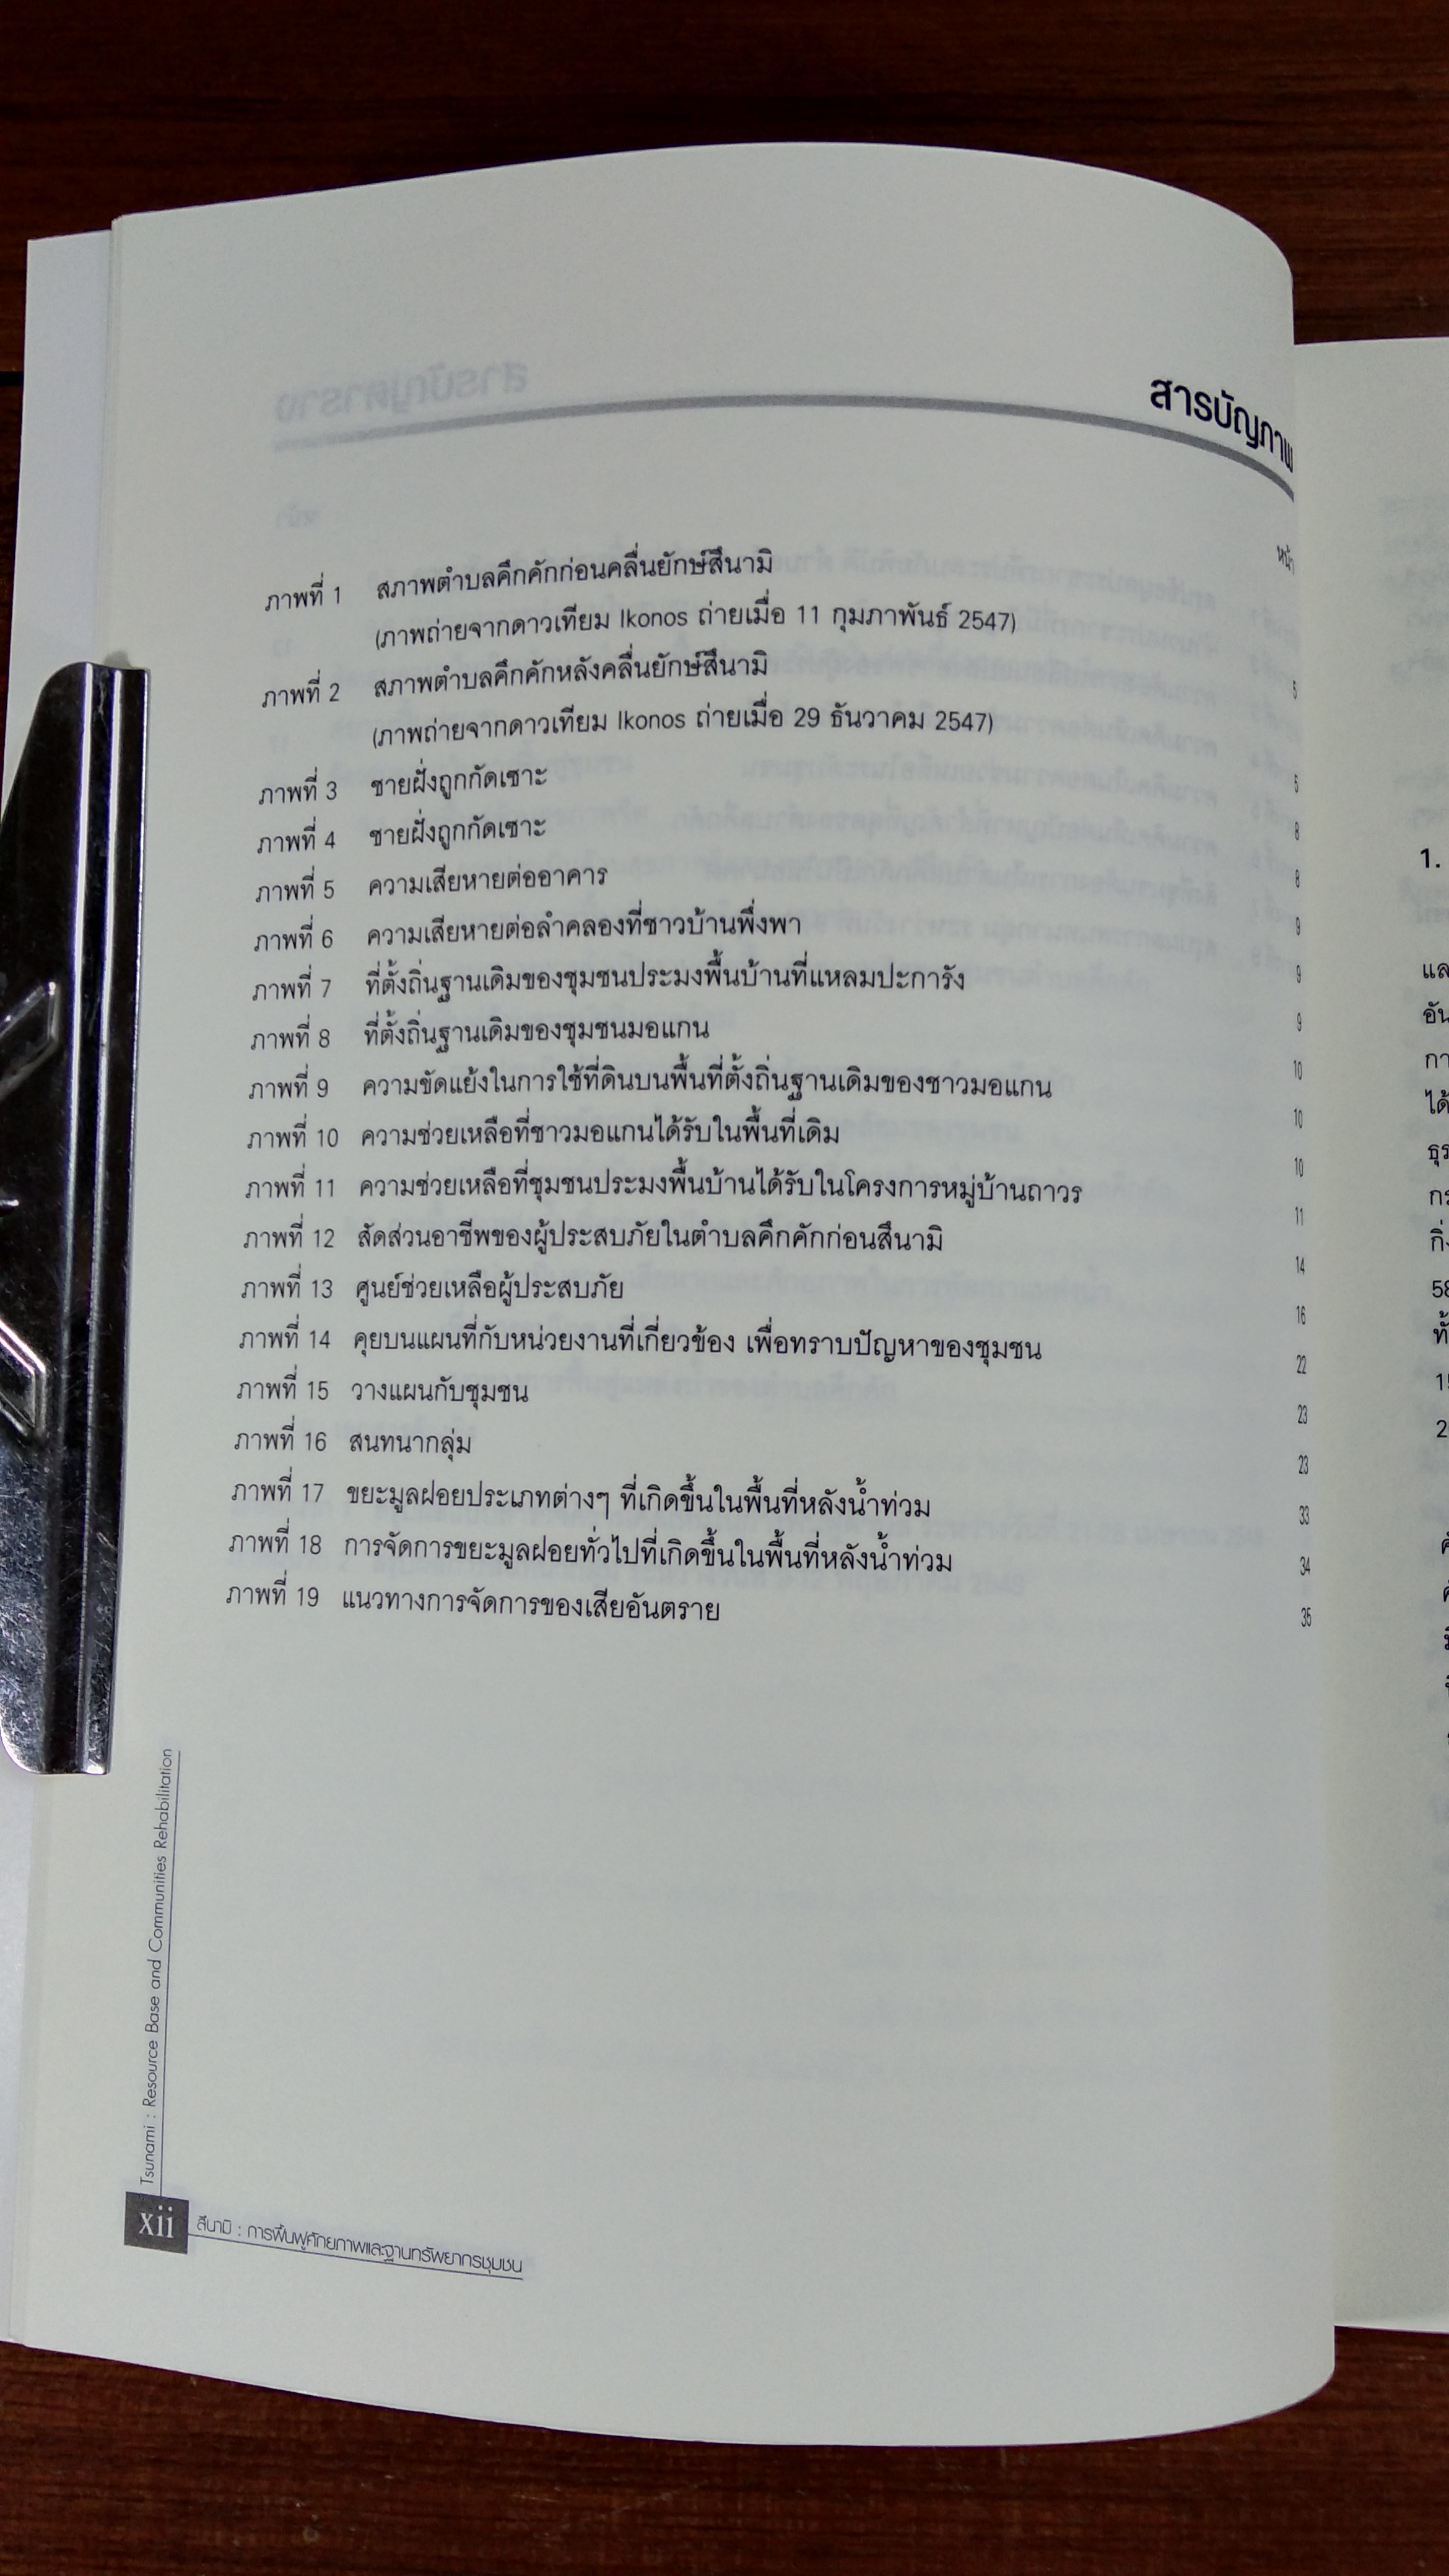 สารบัญภาพ
หน้า
ภาพที่ 1 สภาพตำบลคึกคักก่อนคลื่นยักษ์สึนามิ
(ภาพถ่ายจากดาวเทียม Ikonos ถ่ายเมื่อ 11 กุมภาพันธ์ 2547) 5
ภาพที่ 2 สภาพตำบลคึกคักหลังคลื่นยักษ์สึนามิ
(ภาพถ่ายจากดาวเทียม Ikonos ถ่ายเมื่อ 29 ธันวาคม 2547) 5
ภาพที่ 3 ชายฝั่งถูกกัดเซาะ 8
ภาพที่ 4 ชายฝั่งถูกกัดเซาะ 8
ภาพที่ 5 ความเสียหายต่ออาคาร 9
ภาพที่ 6 ความเสียหายต่อลำคลองที่ชาวบ้านพึ่งพา 9
ภาพที่ 7 ที่ตั้งถิ่นฐานเดิมของชุมชนประมงพื้นบ้านที่แหลมปะการัง 9
ภาพที่ 8 ที่ตั้งถิ่นฐานเดิมของชุมชนมอแกน 10
ภาพที่ 9 ความขัดแย้งในการใช้ที่ดินบนพื้นที่ตั้งถิ่นฐานเดิมของชาวมอแกน 10
ภาพที่ 10 ความช่วยเหลือที่ชาวมอแกนได้รับในพื้นที่เดิม 10
ภาพที่ 11 ความช่วยเหลือที่ชุมชนประมงพื้นบ้านได้รับในโครงการหมู่บ้านถาวร 11
ภาพที่ 12 สัดส่วนอาชีพของผู้ประสบภัยในตำบลคึกคักก่อนสึนามิ 14
ภาพที่ 13 ศูนย์ช่วยเหลือผู้ประสบภัย 16
ภาพที่ 14 คุยบนแผนที่กับหน่วยงานที่เกี่ยวข้อง เพื่อทราบปัญหาของชุมชน 22
ภาพที่ 15 วางแผนกับชุมชน 23
ภาพที่ 16 สนทนากลุ่ม 23
ภาพที่ 17 ขยะมูลฝอยประเภทต่างๆ ที่เกิดขึ้นในพื้นที่หลังน้ำท่วม 33
ภาพที่ 18 การจัดการขยะมูลฝอยทั่วไปที่เกิดขึ้นในพื้นที่หลังน้ำท่วม 34
ภาพที่ 19 แนวทางการจัดการของเสียอันตราย 35
Tsunami : Resource Base and Communities Rehabilitation
xii สึนามิ : การฟื้นฟูศักยภาพและฐานทรัพยากรชุมชน
1.